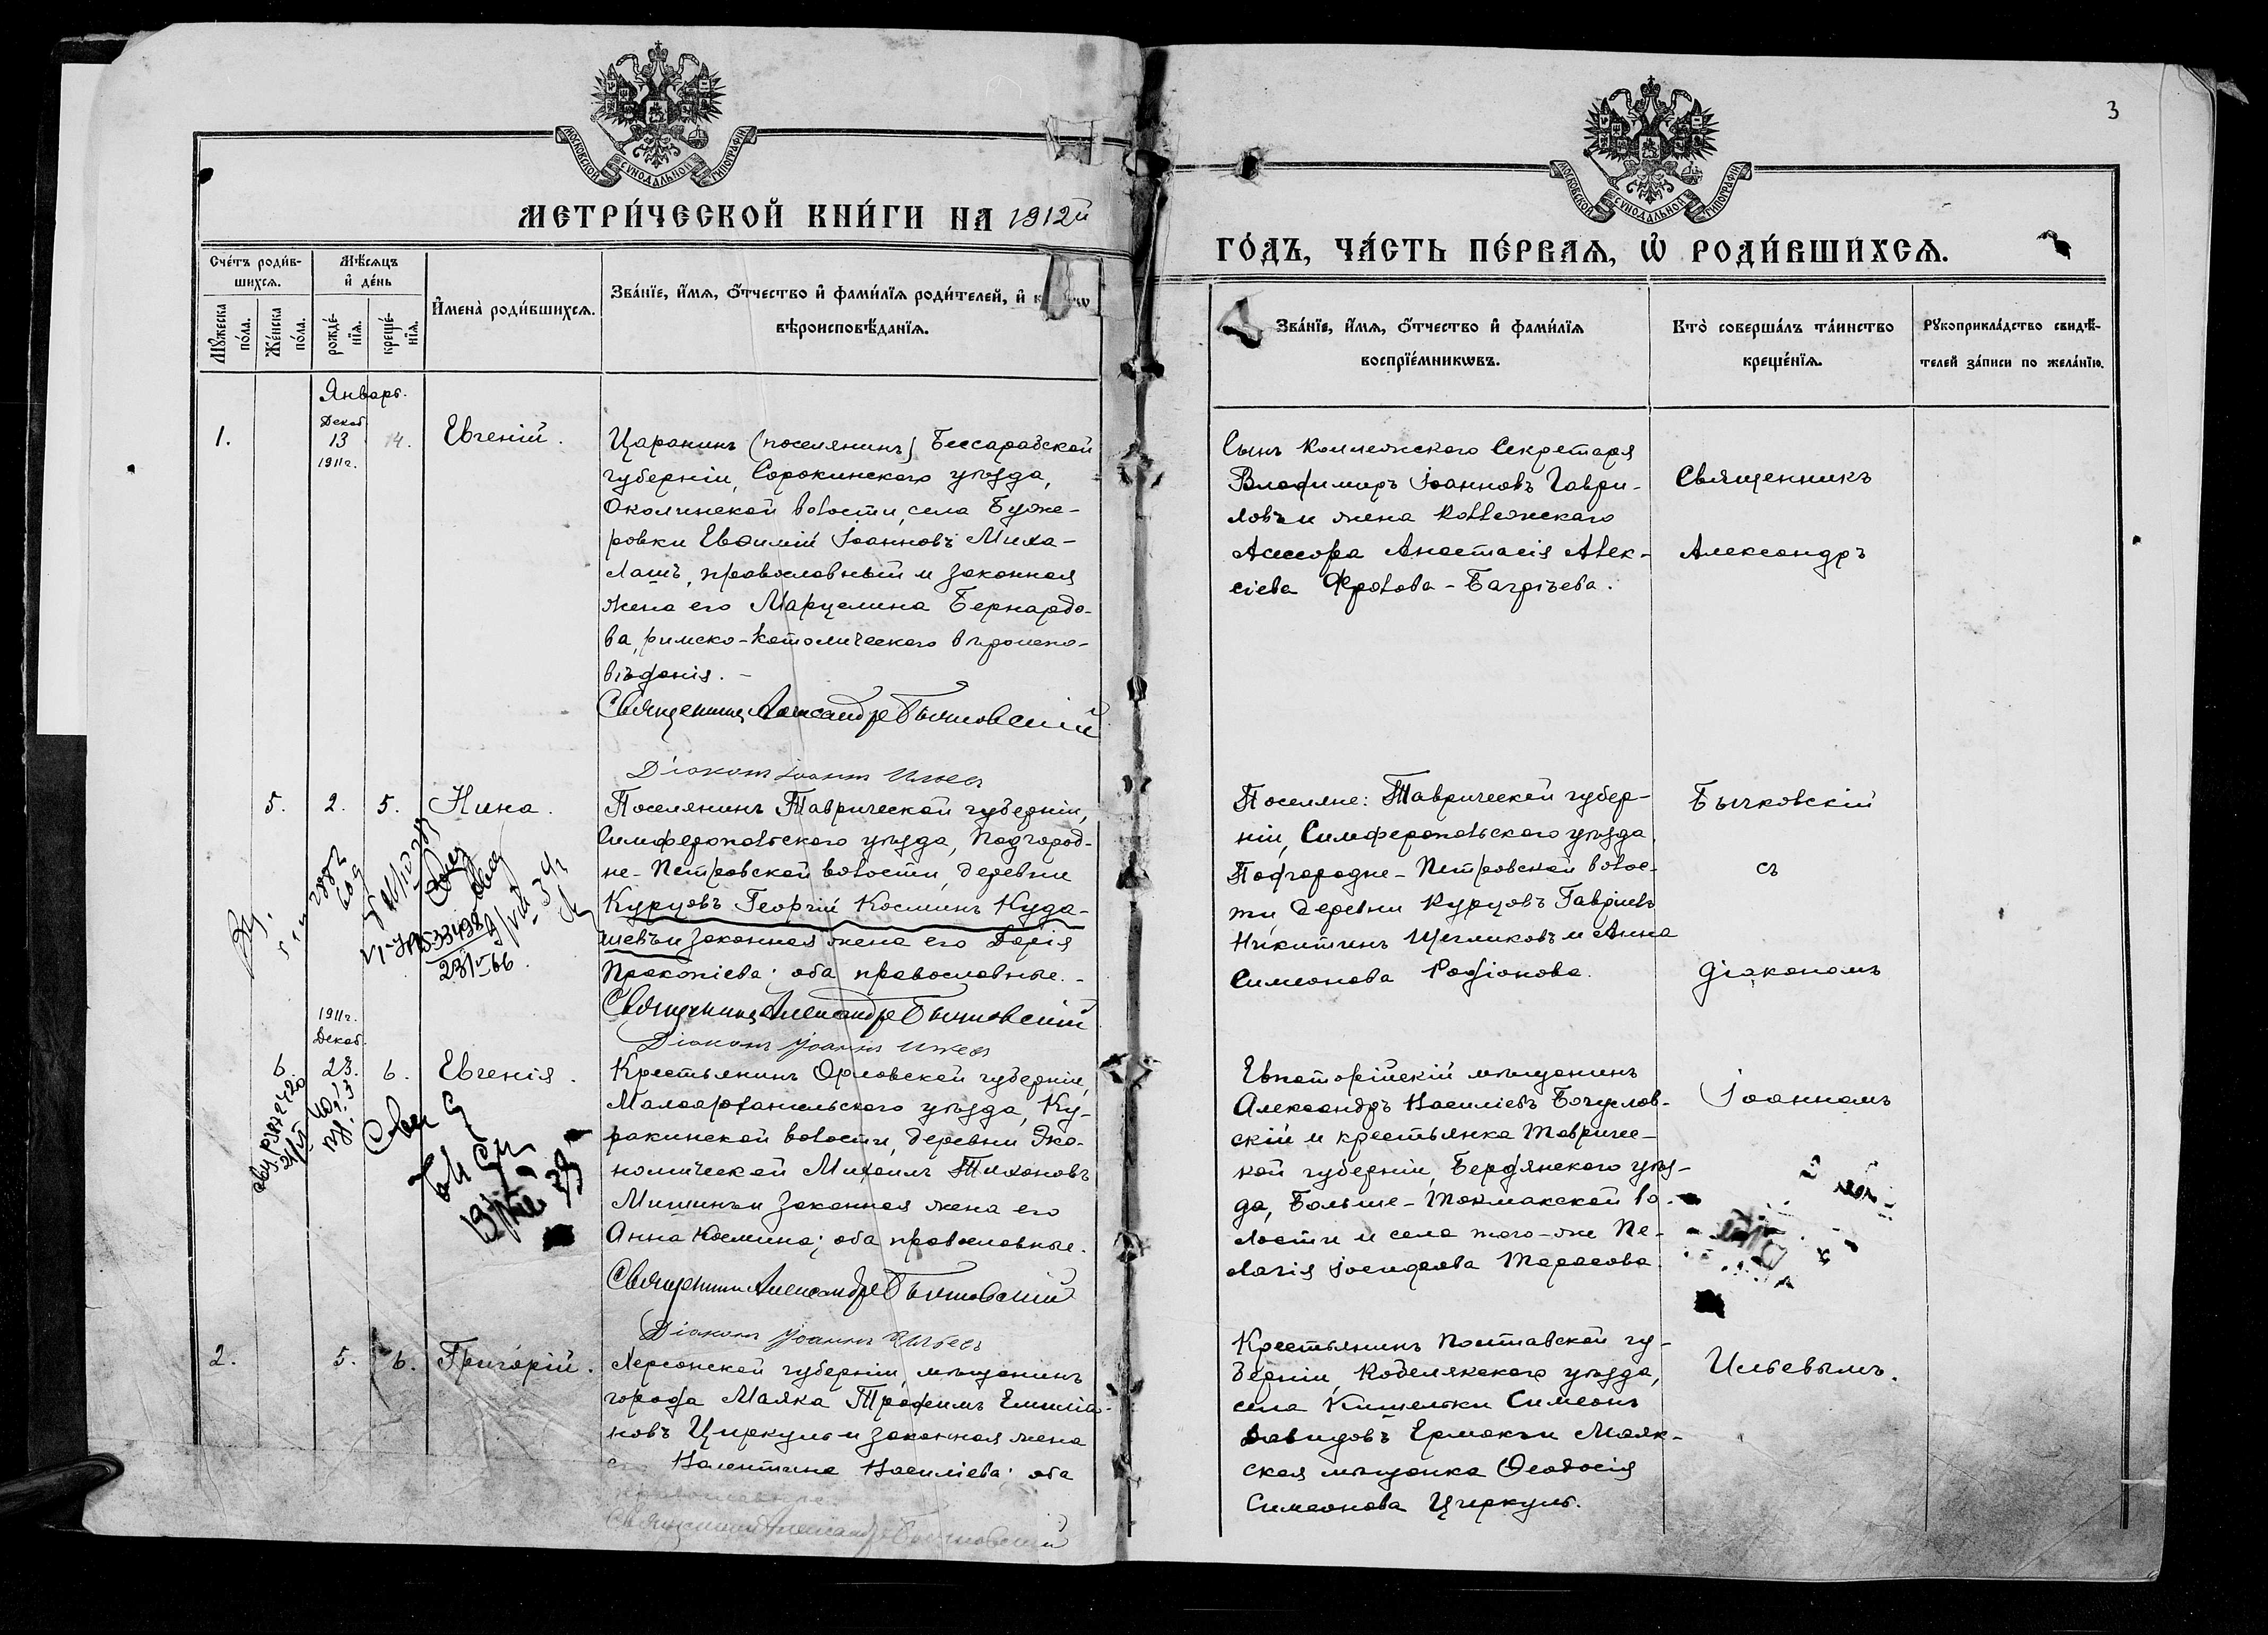 3
МОСКОВСКОЙ СѴНОДАЛЬНОЙ ТИПОГРАФІИ
МОСКОВСКОЙ СѴНОДАЛЬНОЙ ТИПОГРАФІИ
МЕТРИ́ЧЕСКОЙ КНИ́ГИ НА 1912й
ГО́ДЪ, ЧА́СТЬ ПЕ́РВАѦ, Ѡ҆ РОДИ́ВШИХСѦ.
Сче́тъ роди́в-
шихсѧ.
Мꙋ́жеска по́ла.
Же́нска по́ла.
Мѣ́сѧцъ
и҆ де́нь
рожде́-
нїѧ.
креще́-
нїѧ.
И҆мена̀ роди́вшихсѧ.
Зва́нїе, и҆́мѧ, ѻ҆́тчество и҆ фами́лїѧ роди́телей, и҆
вѣроисповѣ́данїѧ.
Зва́нїе, и҆́мѧ, ѻ҆́тчество и҆ фами́лїѧ
воспрїе́мникѡвъ.
Кто̀ соверша́лъ та́инство
креще́нїѧ.
Рꙋкоприкла́дство свидѣ́-
телей за́писи по жела́нїю.
Январь.
1.
Декаб.
13
1911г.
14.
Евгеній.
Царанинъ (поселянинъ) Бессарабской
губерніи, Сорокинскаго уѣзда,
Околинской волости, села Буже-
ровки Евѳимій Іоанновъ Миха-
лашъ, православный и законная
жена его Марцелина Бернардо-
ва, римско-католическаго вѣроиспо-
вѣданія. –
Священникъ Александръ Бычковскій
Діаконъ Іоаннъ Ильевъ
Сынъ Коллежскаго Секретаря
Владимиръ Іоанновъ Гаври-
ловъ и жена Коллежскаго
Асессора Анастасія Алек-
сіева Фролова-Багрѣева.
Священникъ
Александръ
5.
2.
5.
Нина.
Поселянинъ Таврической губерніи,
Симферопольскаго уѣзда, Подгород-
не-Петровской волости, деревни
Курцовъ Георгій Косминъ Куда-
шевъ и законная жена его Дарія
Прокопіева; оба православные. –
Священникъ Александръ Бычковскій
Діаконъ Іоаннъ Ильевъ
Поселяне: Таврической губер-
ніи, Симферопольскаго уѣзда,
Подгородне-Петровской волос-
ти, деревни Курцовъ Гавріилъ
Никитинъ Щегликовъ и Анна
Симеонова Родіонова.
Бычковскій
съ
діакономъ
1911г.
Декаб.
6.
23.
6.
Евгенія.
Крестьянинъ Орловской губерніи,
Малоархангельскаго уѣзда, Ку-
ракинской волости, деревни Эко-
номической Михаилъ Тихоновъ
Мишинъ и законная жена его
Анна Космина; оба православные.
Священникъ Александръ Бычковскій
Діаконъ Іоаннъ Ильевъ
Евпаторійскій мѣщанинъ
Александръ Василіевъ Богуслав-
скій и крестьянка Тавричес-
кой губерніи, Бердянскаго уѣз-
да, Больше-Токмакской во-
лости и села того-же Пе-
лагія Іосифова Тарасова.
Іоанномъ
2.
5.
6.
Григорій.
Херсонской губерніи, мѣщанинъ
города Маяка Трофимъ Емиліа-
новъ Циркуль и законная жена
его Валентина Василіева; оба
православные.
Священникъ Александръ Бычковскій
Крестьянинъ Полтавской гу-
берніи, Кобелякскаго уѣзда,
села Кишеньки Симеонъ
Давидовъ Ермакъ и Маяк-
ская мѣщанка Ѳеодосія
Симеонова Циркуль.
Ильевымъ.